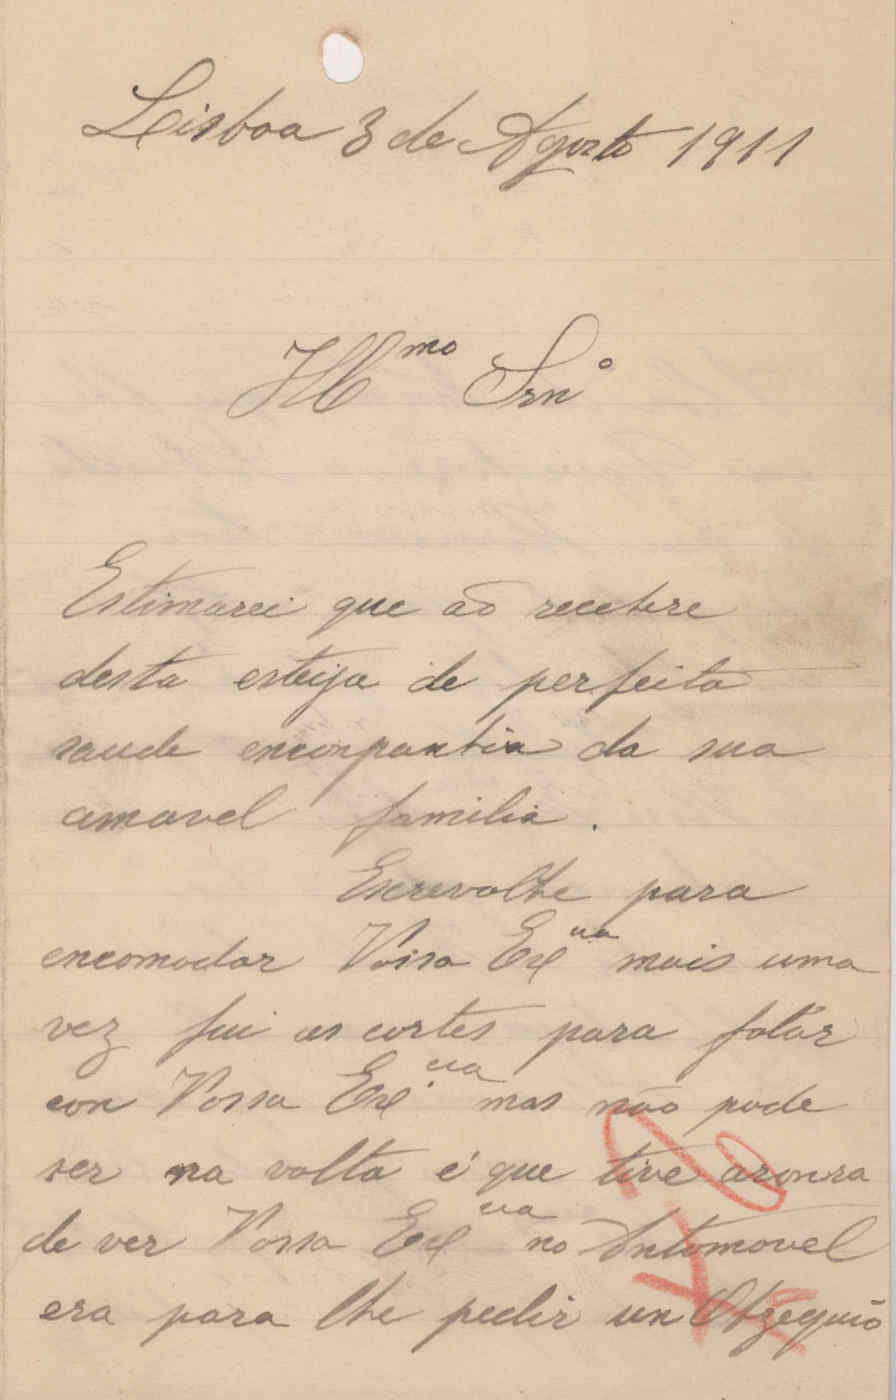 Lisboa 3 de Agosto 1911
Ill.mo Snr.º
Estimarei que aõ recebre
desta esteija de perfeita
saude enconpanhia da sua
amavel familia.
Escrevolhe para
encomodar Voisa Exª mais uma
vez fui as cortes para falár
con Vossa Exª mas não pode
ser na volta é que tive aronra
de ver Vossa Exª no Automovel
era para lhe pedir un Obzequiõ